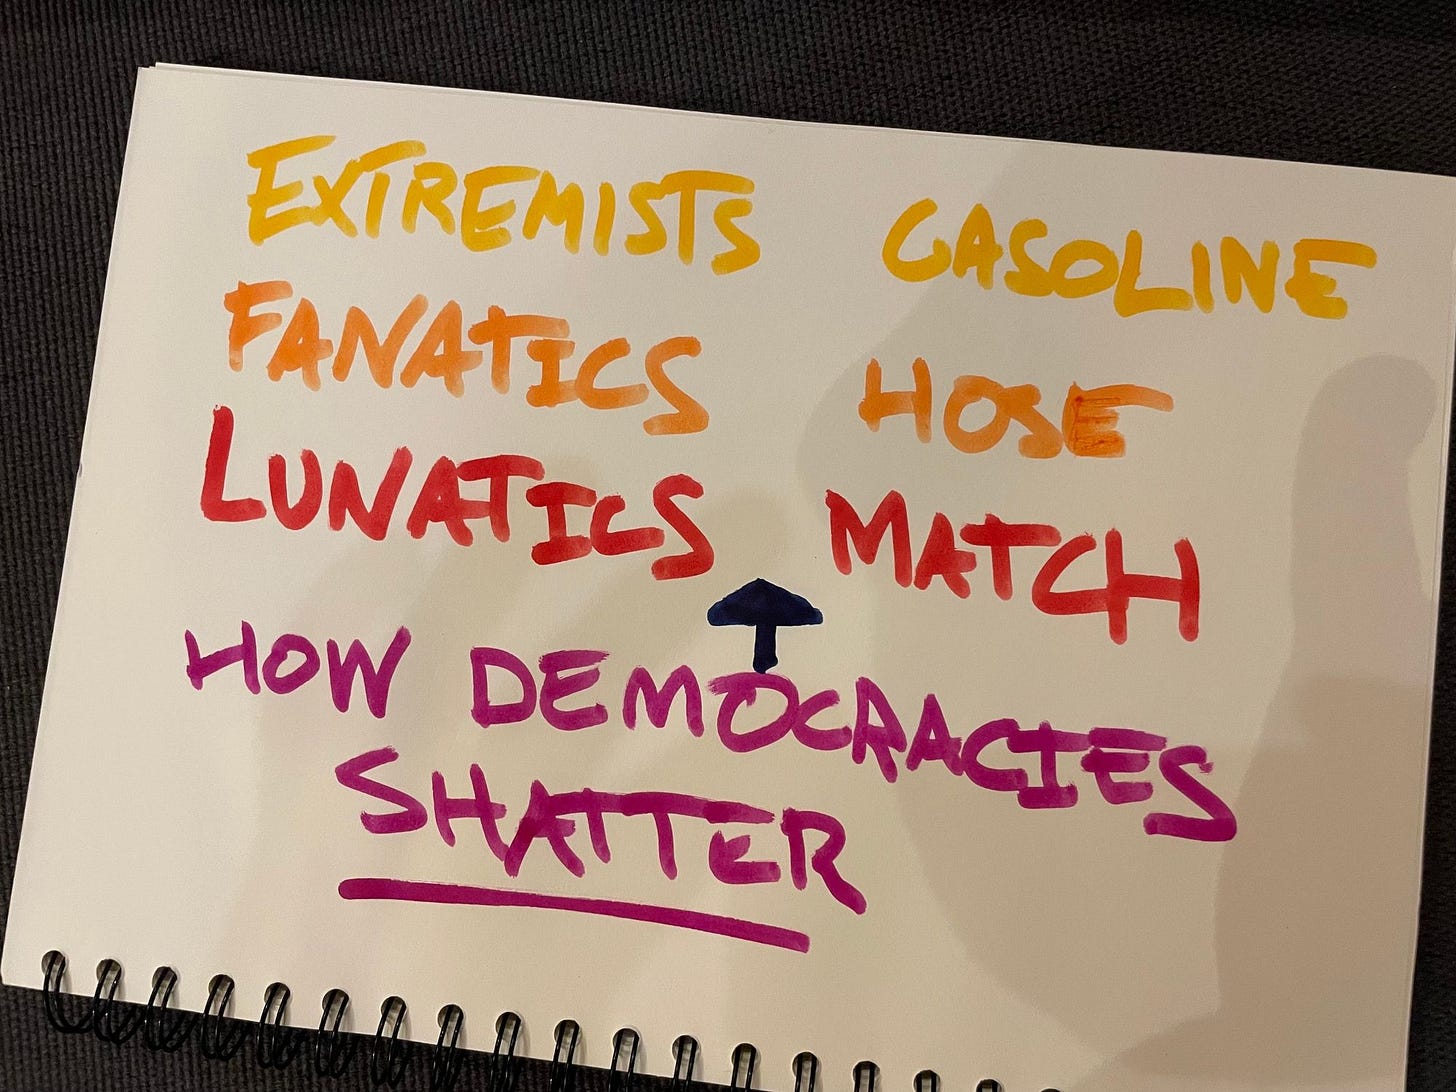 EXTREMISTS GASOLINE
FANATICS HOSE
LUNATICS MATCH
HOW DEMOCRACIES
SHATTER